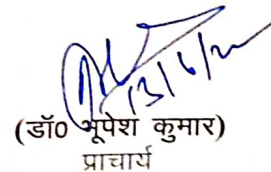 13/6/2
(डॉ0 भूपेश कुमार)
प्राचार्य